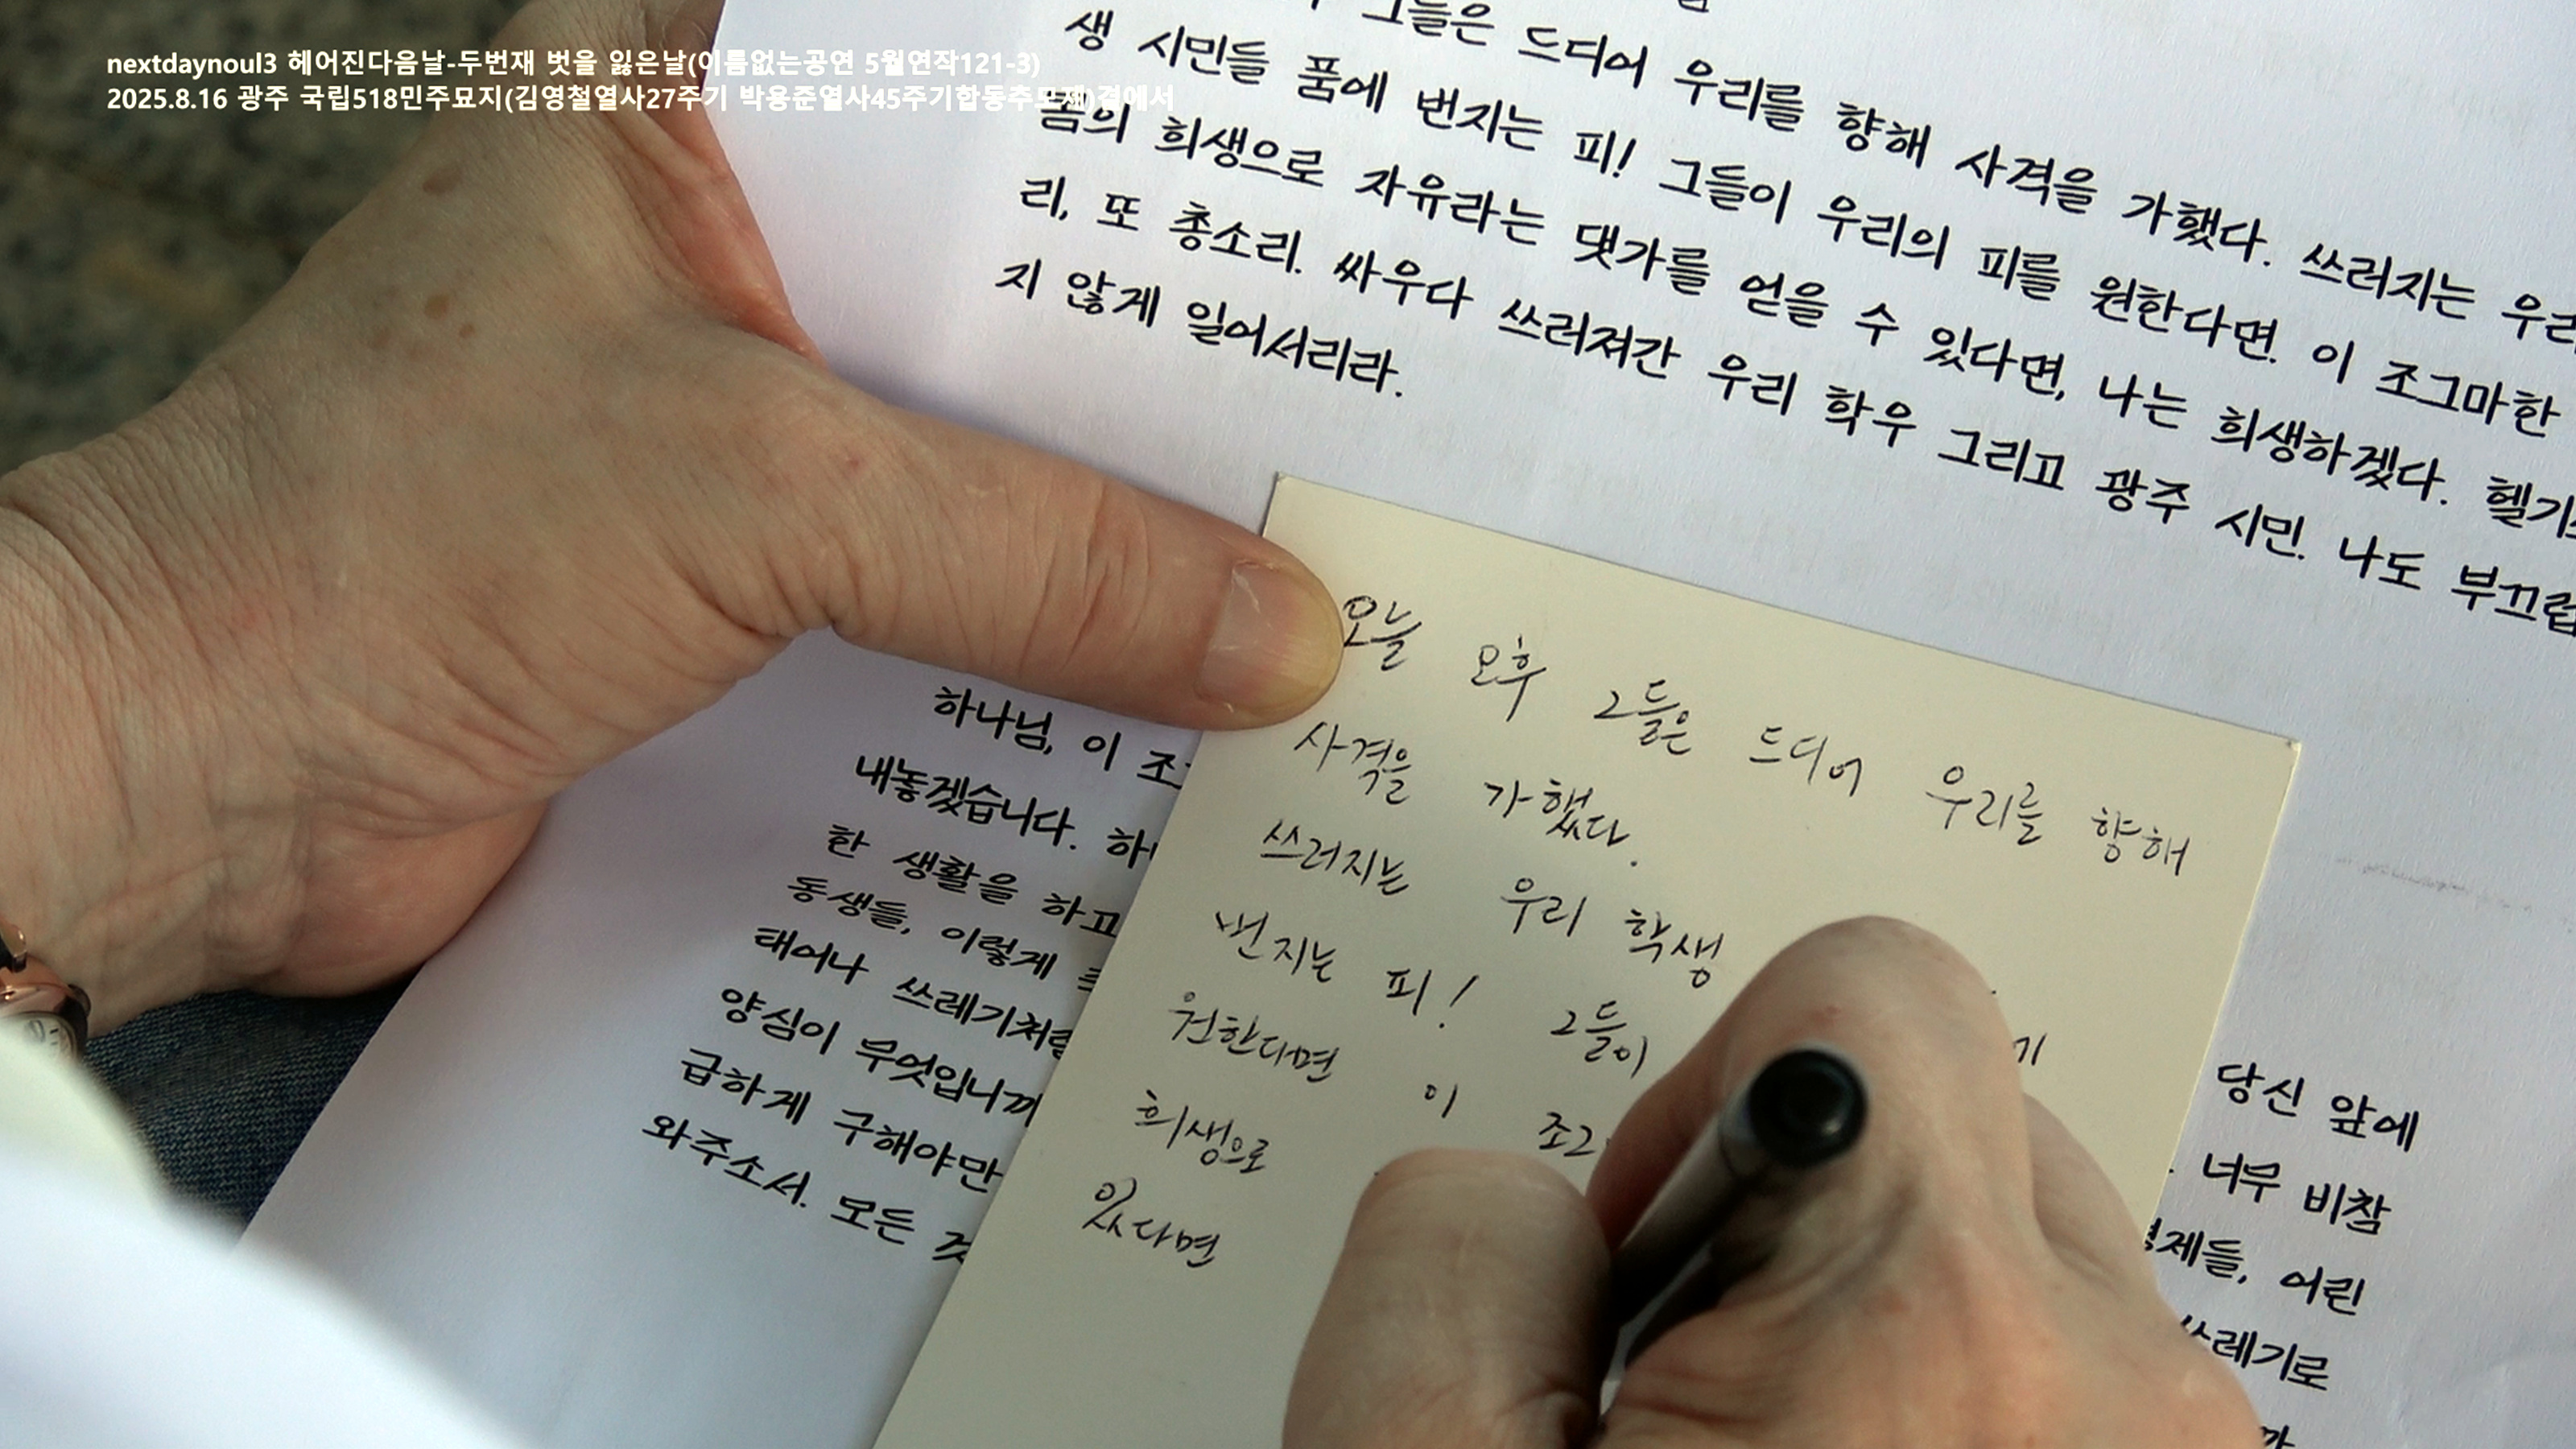 nextdaynoul3 헤어진다음날-두번재 벗을 잃은날(이름없는공연 5월연작121-3)
2025.8.16 광주 국립518민주묘지(김영철열사27주기 박용준열사45주기합동추모제)곁에서
그들은 드디어 우리를 향해 사격을 가했다. 쓰러지는 우리
생 시민들 품에 번지는 피! 그들이 우리의 피를 원한다면. 이 조그마한
몸의 희생으로 자유라는 댓가를 얻을 수 있다면, 나는 희생하겠다. 헬기
리, 또 총소리. 싸우다 쓰러져간 우리 학우 그리고 광주 시민. 나도 부끄럽
지 않게 일어서리라.
오늘 오후 그들은 드디어 우리를 향해
사격을 가했다.
쓰러지는 우리 학생
번지는 피! 그들이 기
원한다면 이 조그
희생으로
있다면
하나님, 이 조 당신 앞에
내놓겠습니다. 하 너무 비참
한 생활을 하고 형제들, 어린
동생들, 이렇게 쓰레기로
태어나 쓰레기처럼
양심이 무엇입니까
급하게 구해야만
와주소서. 모든